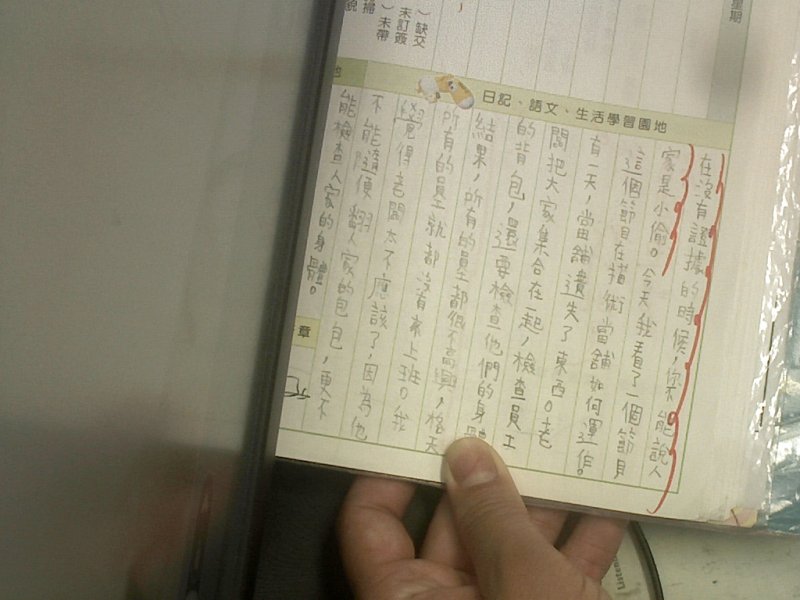 星期
）缺交
）未訂簽
）未帶
掃
日記、語文、生活學習園地
在沒有證據的時候，你不能說人
家是小偷。今天我看了一個節目
這個節目在描術當舖如何運作。
有一天，當舖遺失了東西。老
闆把大家集合在一起，檢查員工
的背包，還要檢查他們的身體
結果，所有的員工都很不高興，格天
所有的員工就都沒有來上班。我
覺得老闆太不應該了，因為他
不能隨便翻人家的包包，更不
能檢查人家的身體。
章
Listen